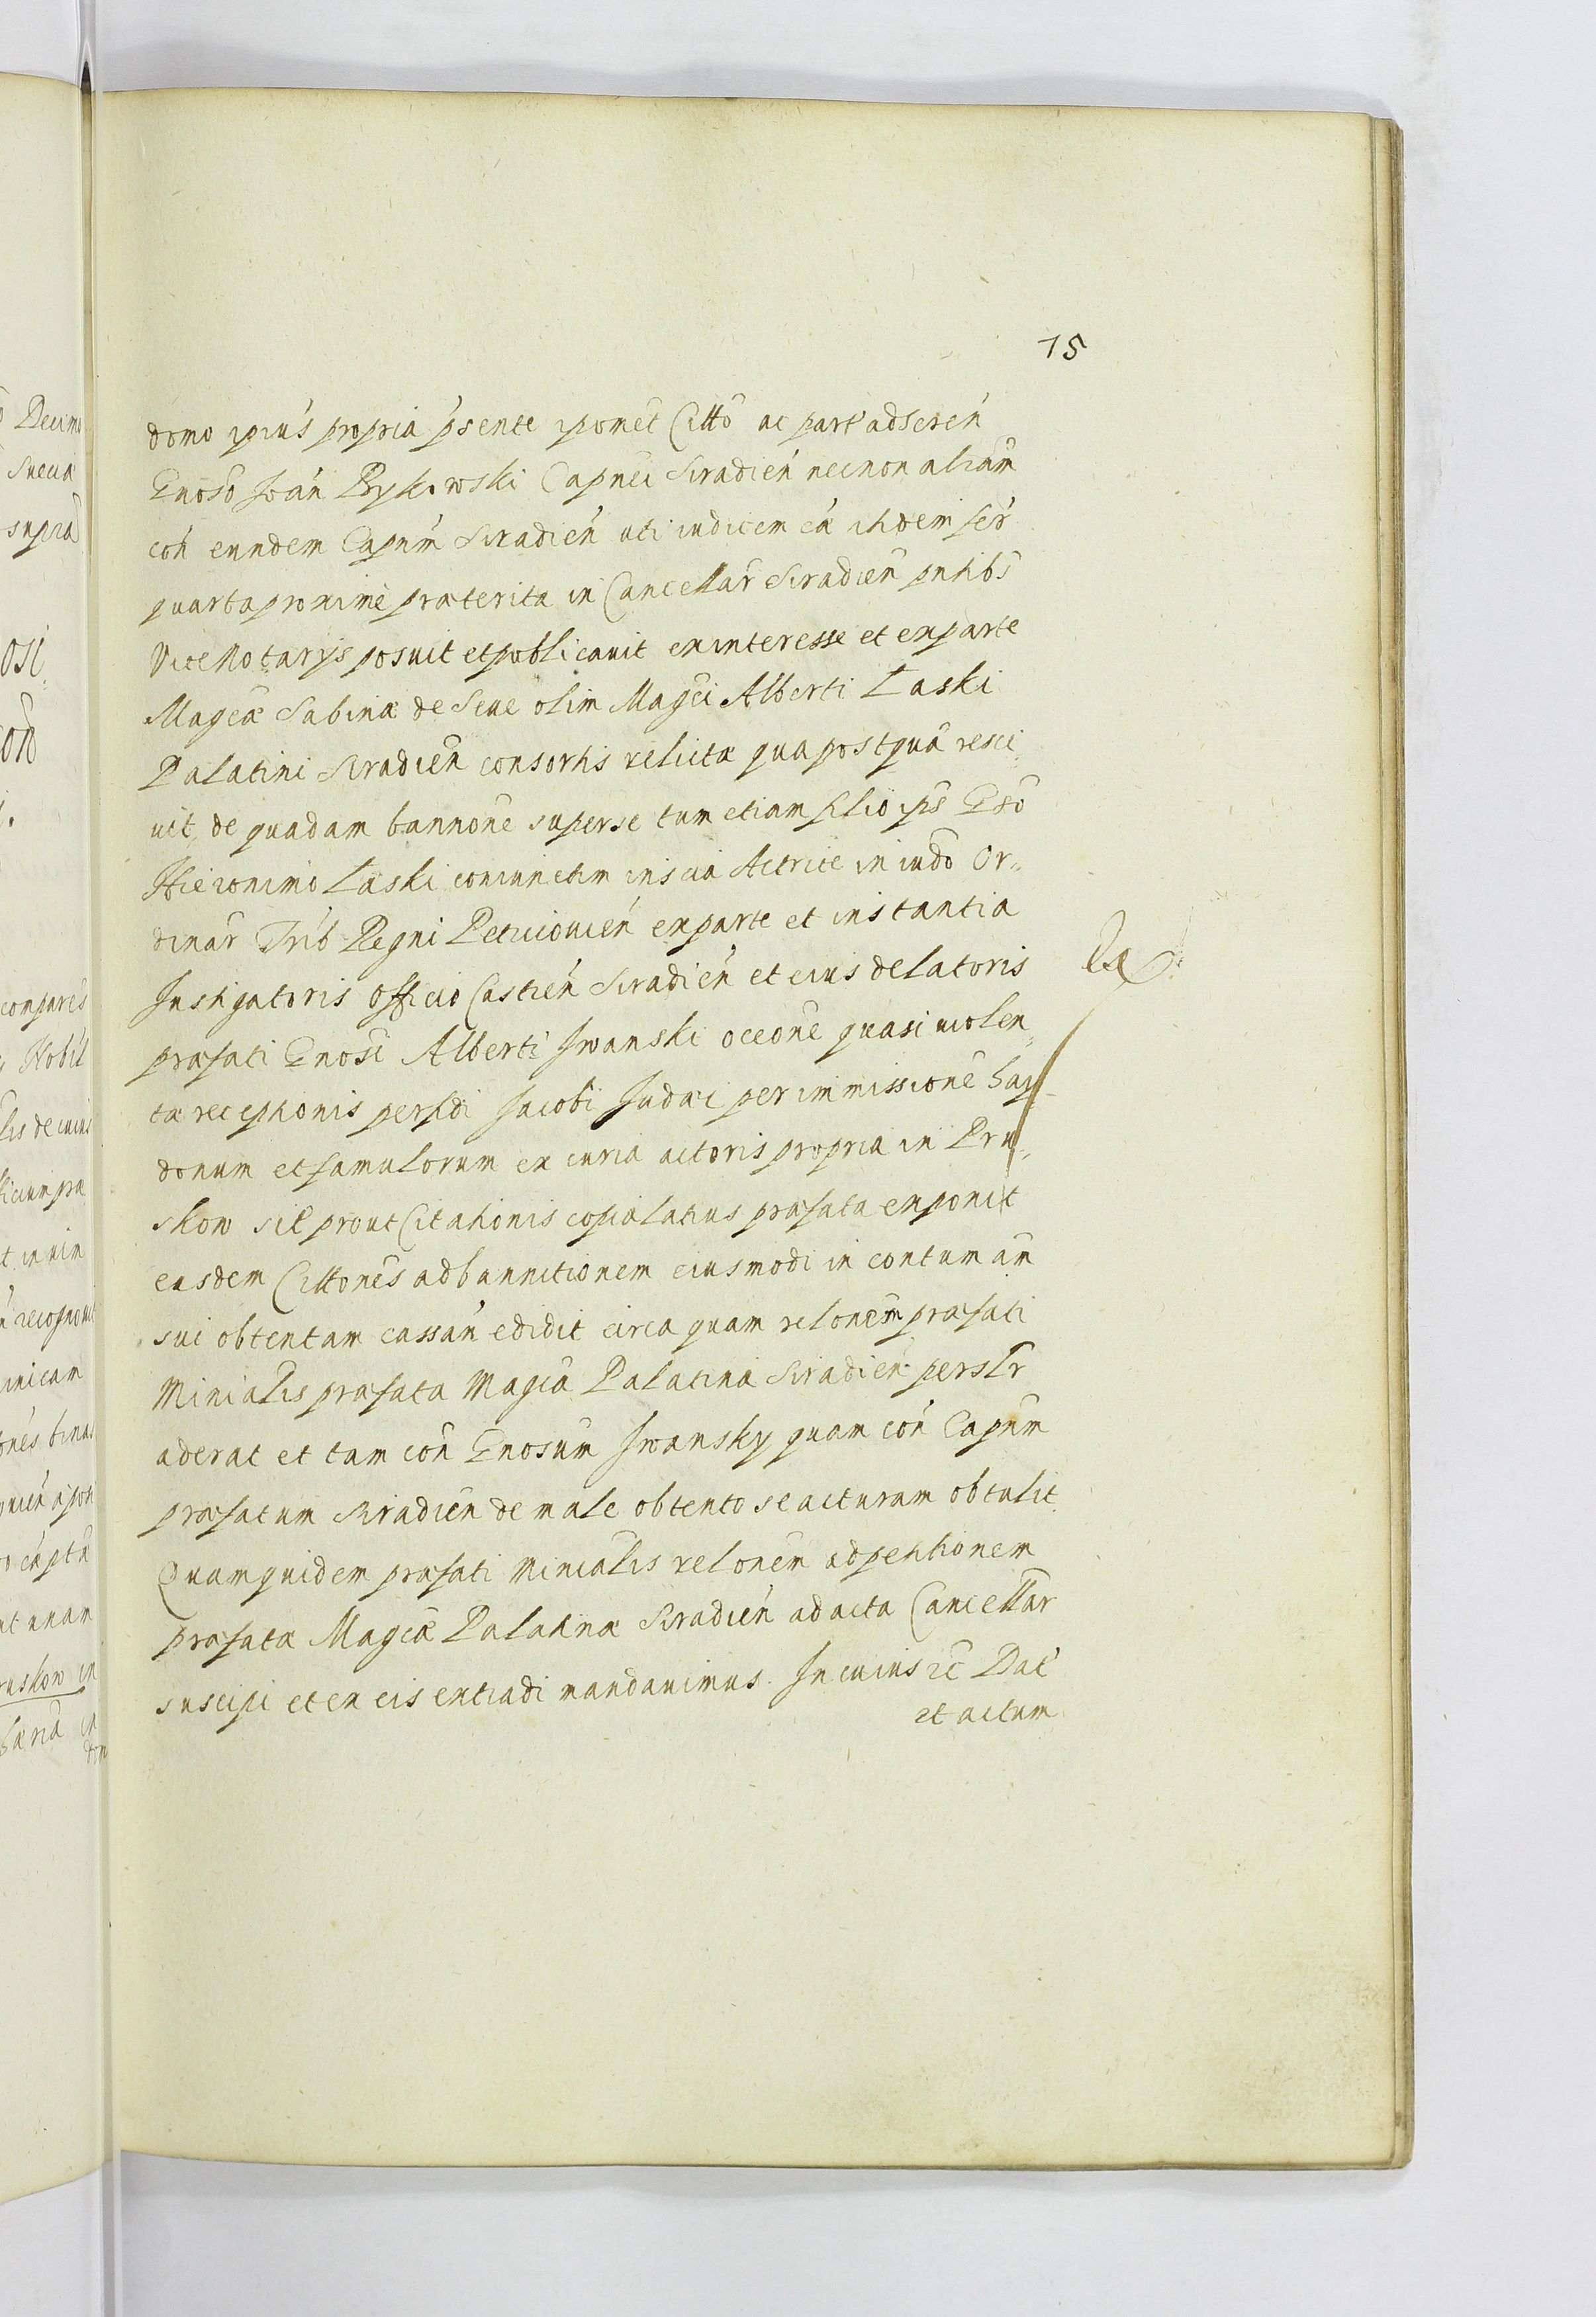 15
domo ipius propria psente ipomet Citto ac part adseren
Gnoso Joan Bykowski Capnei Siradien necnon aliam
con eundem Capnm Siradien uti iudicem ea ibidem fer
quarta proxime præterita in Cancellar Siradien pntibs
Vicenotarÿs posuit et publicauit ex interesse et ex parte
Magcæ Sabinæ de Seue olim Magci Alberti Laski
Palatini Siradien consortis relictæ qua postqua resci
uit de quadam bannone super se tum etiam filio ips Gso
Hieronimo Laski coniunctim inscia Actrice in iudo Or„
dinar Trib Regni Petricouien ex parte et instantia
Instigatoris Officio Castien Siradien et eius delatoris
præfati Gnosi Alberti Jwanski occone quasi uiolen„
tæ receptionis perfidi Jacobi Judæi per immissione hay
donum et famulorum ex curia actoris propria in Pru„
skow sit prout Citationis copia latius præfata exponit
easdem Cittones ad bannitionem eiusmodi in contumam
sui obtentam cassan edidit circa quam relonem præfati
Minialis præfata Magca Palatina Siradien perslr
aderat et tam con Gnosum Jwansky quam con Capnm
præfatum Siradien de male obtento se acturam obtulit
Quamquidem præfati Minialis relonem ad petitionem
præfatæ Magcæ Palatinæ Siradien ad acta Cancellar
suscipi et ex eis extradi mandauimus. In cuius rc Dat
et actum
Decim
Suecia
supra
osi
compares
Nobil
lis de cuius
t in uim
recognouit
unicam
ones binas
ut unam
uskow in